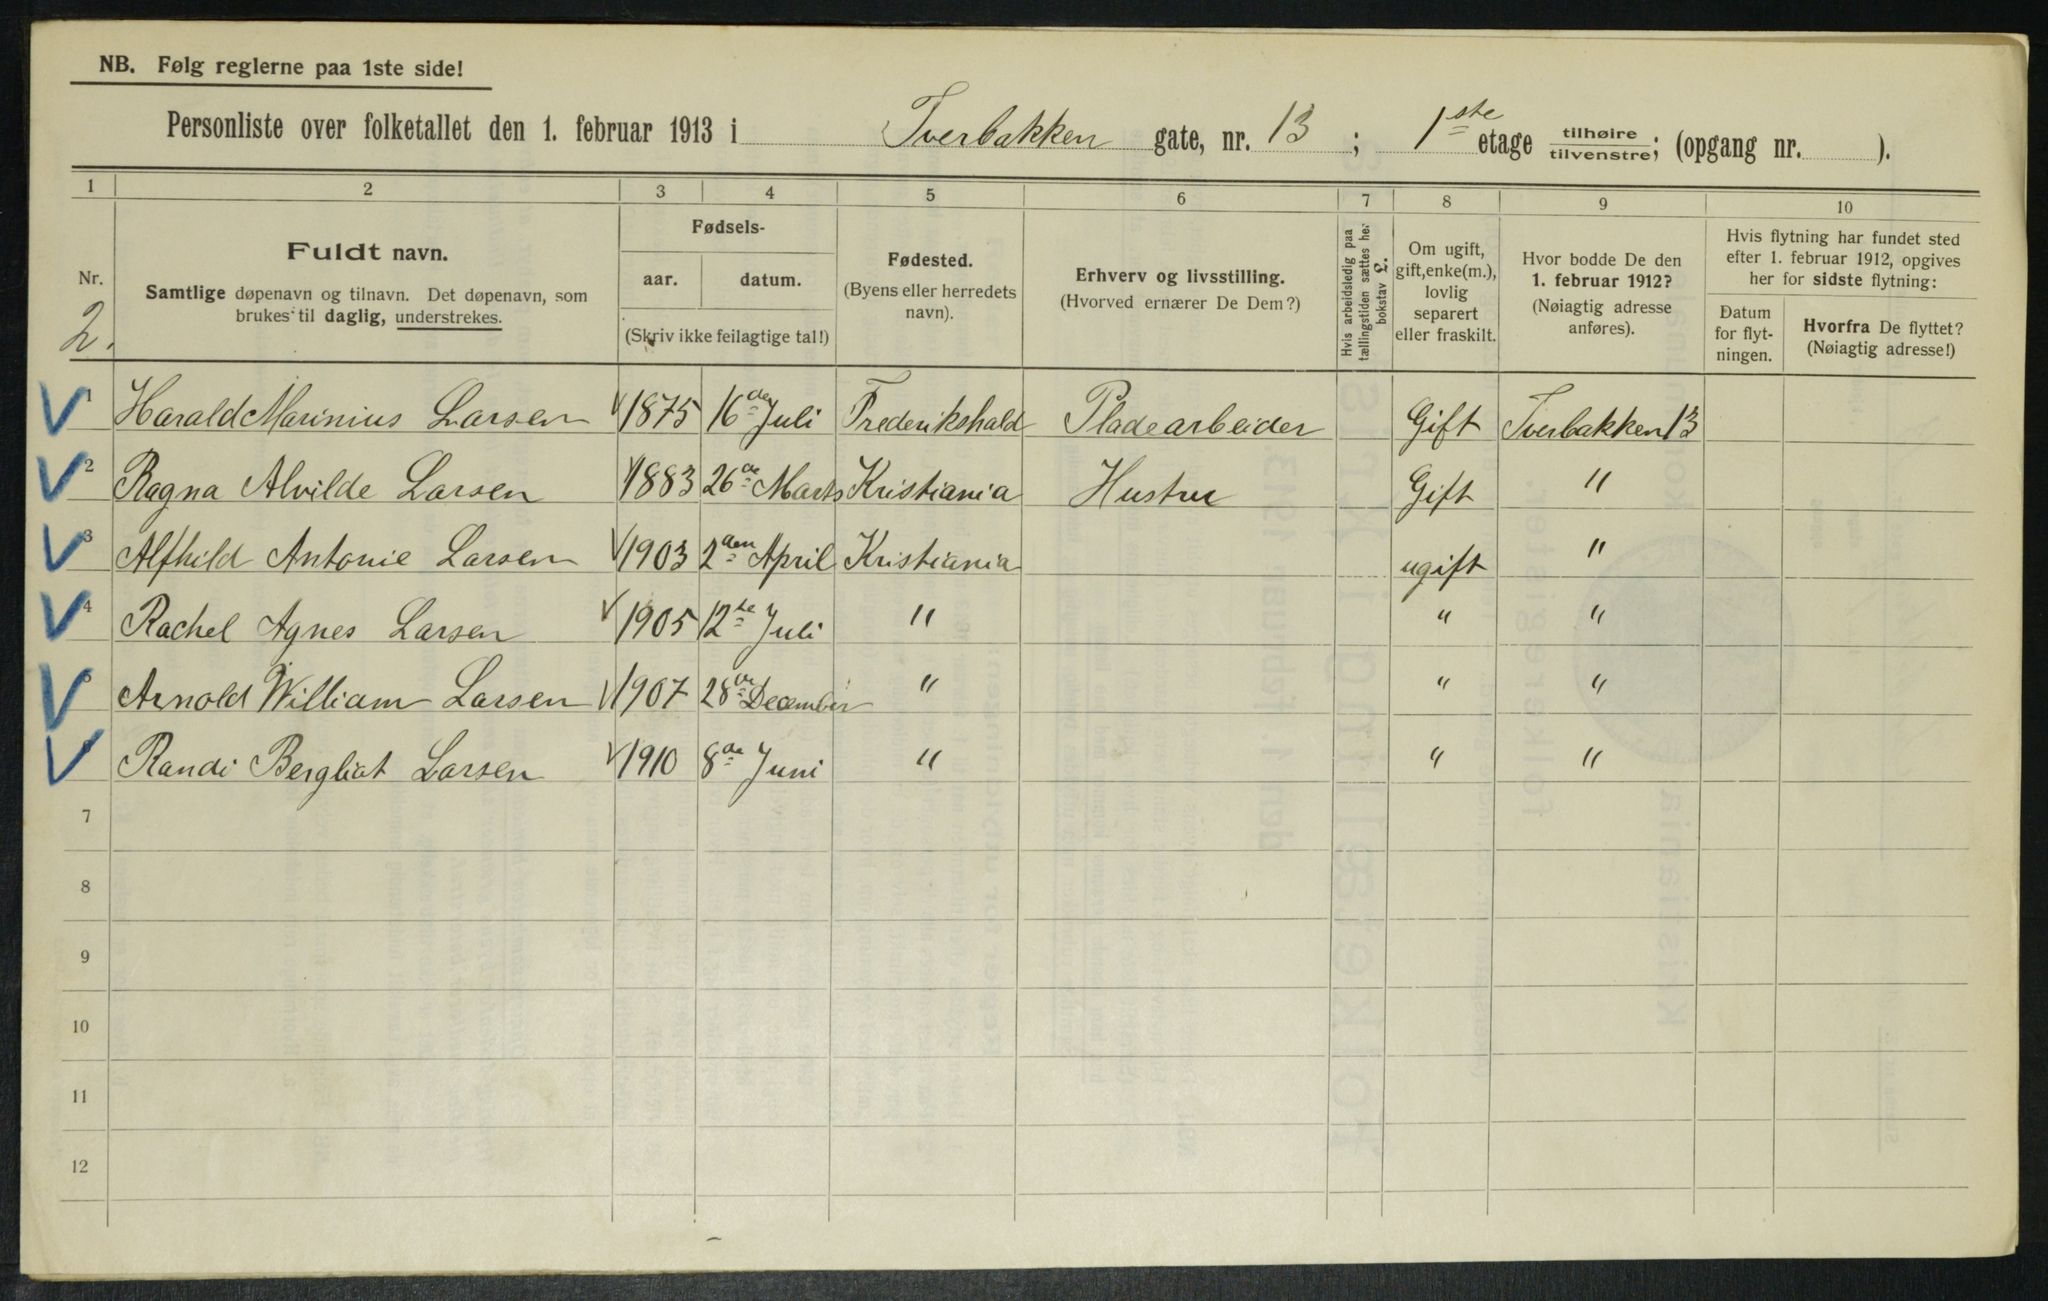 NB. Følg reglerne paa 1ste side!
Personliste over folketallet den 1. februar 1913 i Tverbakken gate, nr. 13 ; 1ste etage tilhøire tilvenstre; (opgang nr. ).
1 2 3 4 5 6 7 8 9 10
Nr.
2.
Fuldt navn.
Samtlige døpenavn og tilnavn. Det døpenavn, som
brukes til daglig, understrekes.
Fødsels-
aar. datum.
(Skriv ikke feilagtige tal!)
Fødested.
(Byens eller herredets
navn).
Erhverv og livsstilling.
(Hvorved ernærer De Dem?)
Hvis arbeidsledig paa
tællingstiden sættes her
bokstav £.
Om ugift,
gift, enke(m.),
lovlig
separert
eller fraskilt.
Hvor bodde De den
1. februar 1912?
(Nøiagtig adresse
anføres).
Hvis flytning har fundet sted
efter 1. februar 1912, opgives
her for sidste flytning:
Datum
for flyt-
ningen.
Hvorfra De flyttet?
(Nøiagtig adresse!)
1 Harald Marinius Larsen 1875 16de Juli Frederikshald Pladearbeider Gift Tverbakken 13
2 Ragna Alvilde Larsen 1883 26de Marts Kristiania Hustru Gift "
3 Alfhild Antonie Larsen 1903 2den April Kristiania ugift "
4 Rachel Agnes Larsen 1905 12te Juli " " "
5 Arnold William Larsen 1907 28de December " " "
6 Randi Bergliot Larsen 1910 8de Juni " " "
7
8
9
10
11
12